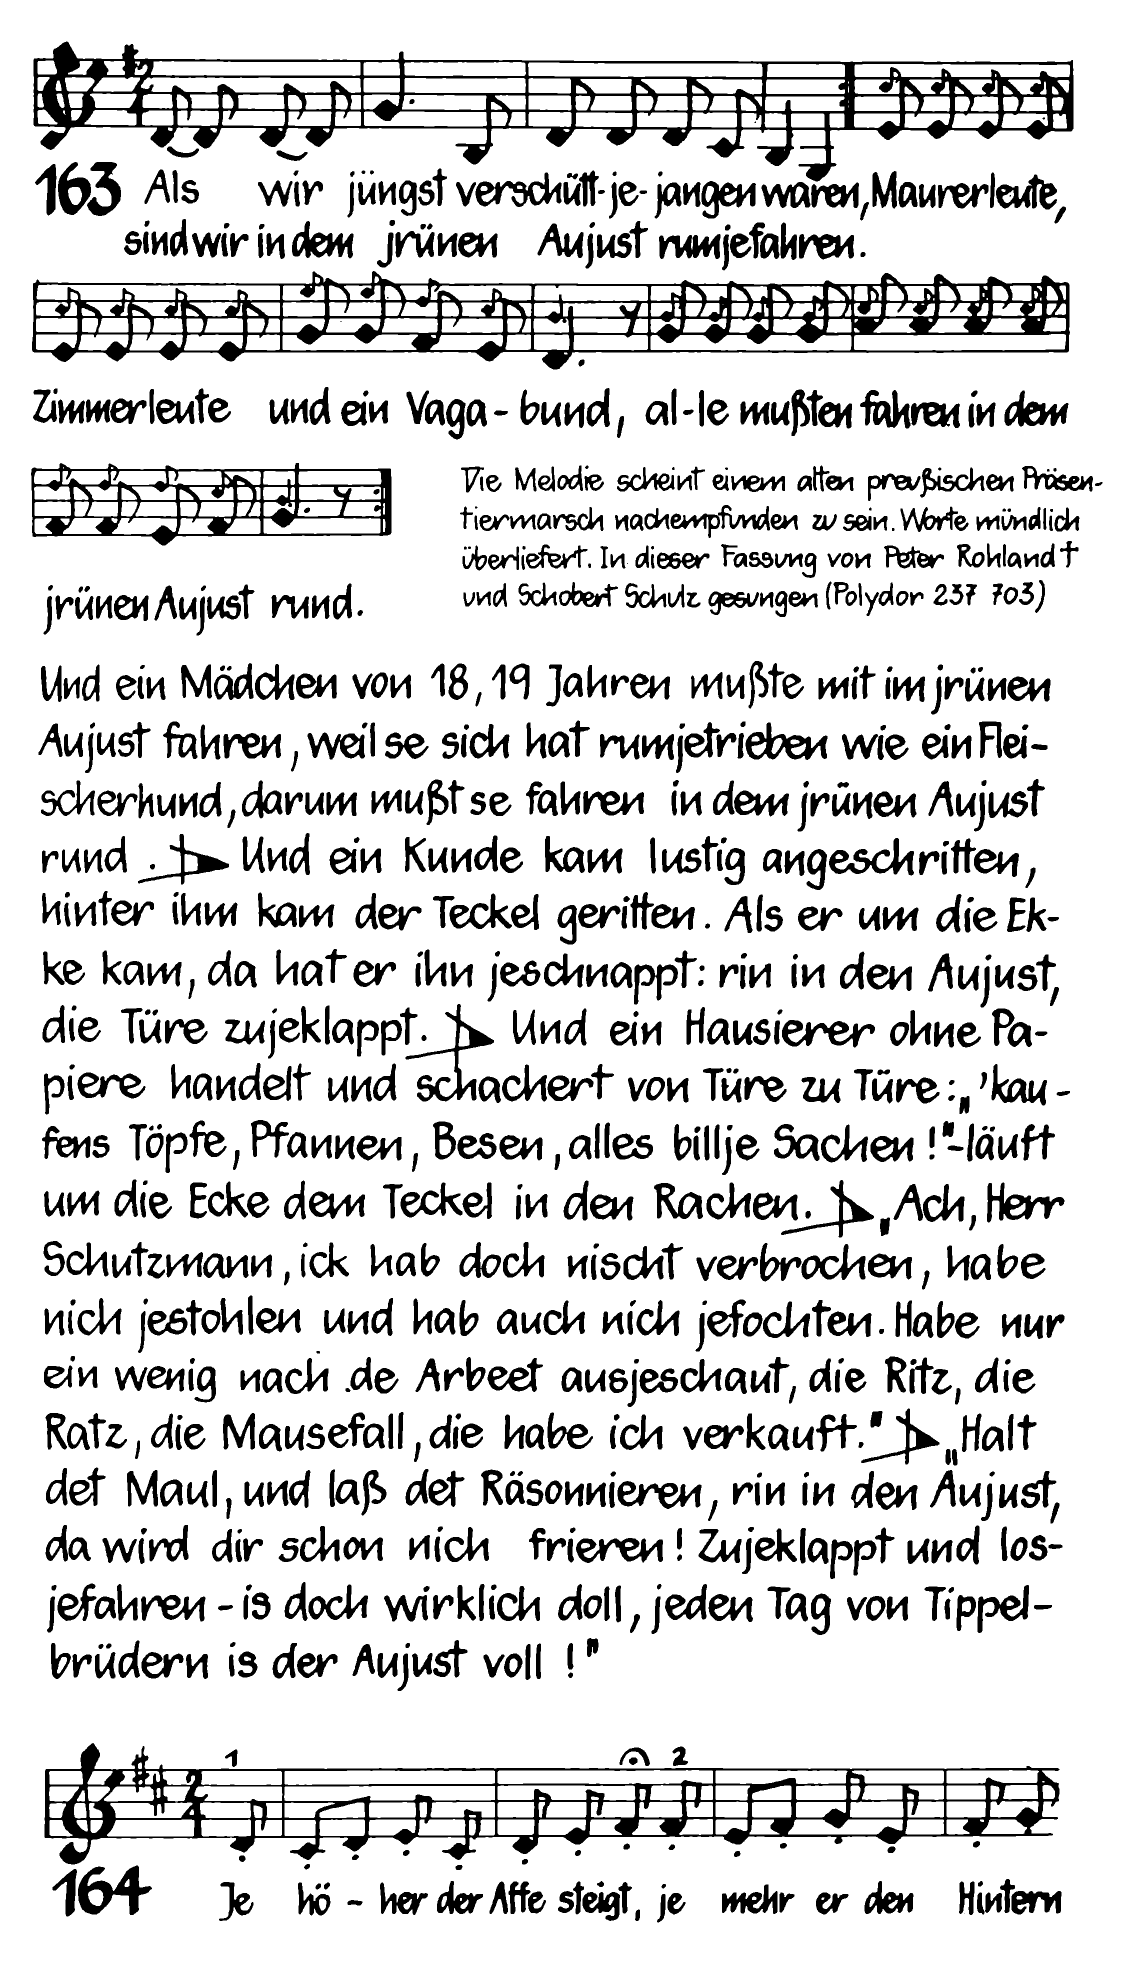 163 Als wir jüngst verschütt-je-jangen waren, Maurerleute,
sind wir in dem jrünen Aujust rumjefahren.
Zimmerleute und ein Vaga-bund, al-le mußten fahren in dem
jrünen Aujust rund.
Die Melodie scheint einem alten preußischen Präsen-
tiermarsch nachempfunden zu sein. Worte mündlich
überliefert. In dieser Fassung von Peter Rohland †
und Schobert Schulz gesungen (Polydor 237 703)
Und ein Mädchen von 18, 19 Jahren mußte mit im jrünen
Aujust fahren, weil se sich hat rumjetrieben wie ein Flei-
scherhund, darum mußt se fahren in dem jrünen Aujust
rund. Und ein Kunde kam lustig angeschritten,
hinter ihm kam der Teckel geritten. Als er um die Ek-
ke kam, da hat er ihn jeschnappt: rin in den Aujust,
die Türe zujeklappt. Und ein Hausierer ohne Pa-
piere handelt und schachert von Türe zu Türe: „'kau-
fens Töpfe, Pfannen, Besen, alles billje Sachen!"-läuft
um die Ecke dem Teckel in den Rachen. „Ach, Herr
Schutzmann, ick hab doch nischt verbrochen, habe
nich jestohlen und hab auch nich jefochten. Habe nur
ein wenig nach de Arbeet ausjeschaut, die Ritz, die
Ratz, die Mausefall, die habe ich verkauft." „Halt
det Maul, und laß det Räsonnieren, rin in den Aujust,
da wird dir schon nich frieren! Zujeklappt und los-
jefahren - is doch wirklich doll, jeden Tag von Tippel-
brüdern is der Aujust voll!"
1 2
164 Je hö - her der Affe steigt, je mehr er den Hintern